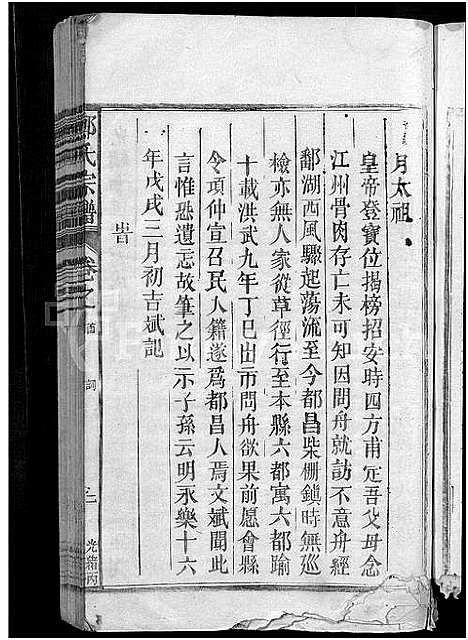 月太祖
皇帝登寶位揭榜招安時四方甫定吾父母念
江州骨肉存亡未可知因問舟就訪不意舟經
鄱湖西風驟起蕩流至今都昌柴棚鎮時無巡
檢亦無人家從草徑行至本縣六都寓六都踰
十載洪武九年丁巳出市問舟欲果前愿會縣
令項仲宣召民人籍遂爲都昌人焉文斌聞此
言惟恐遺忘故筆之以示子孫云明永樂十六
年戊戌二月初吉斌記
氏宗譜
卷之
詞
光緒丙